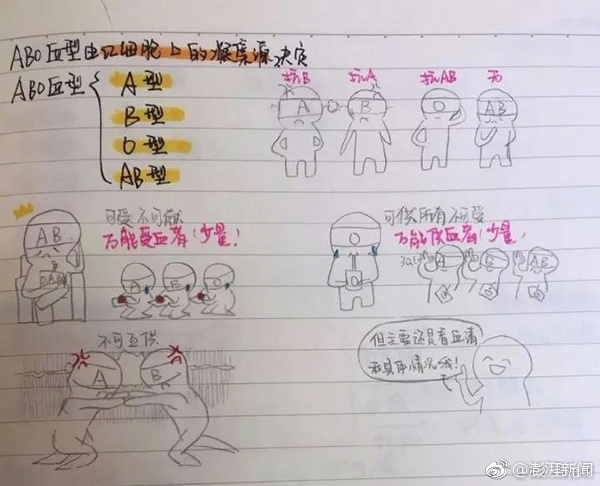 ABO血型由红细胞上的凝集源决定
ABO血型
A型
B型
O型
AB型
抗B 抗A 抗AB 无
A B O AB
可受不可献
万能受血者(少量!
AB
A B O
可供所有不可受
万能供血者(少量!
O
A B AB
不可互供
A B
但主要还是看血清
和具体情况哦!
@澎湃新闻